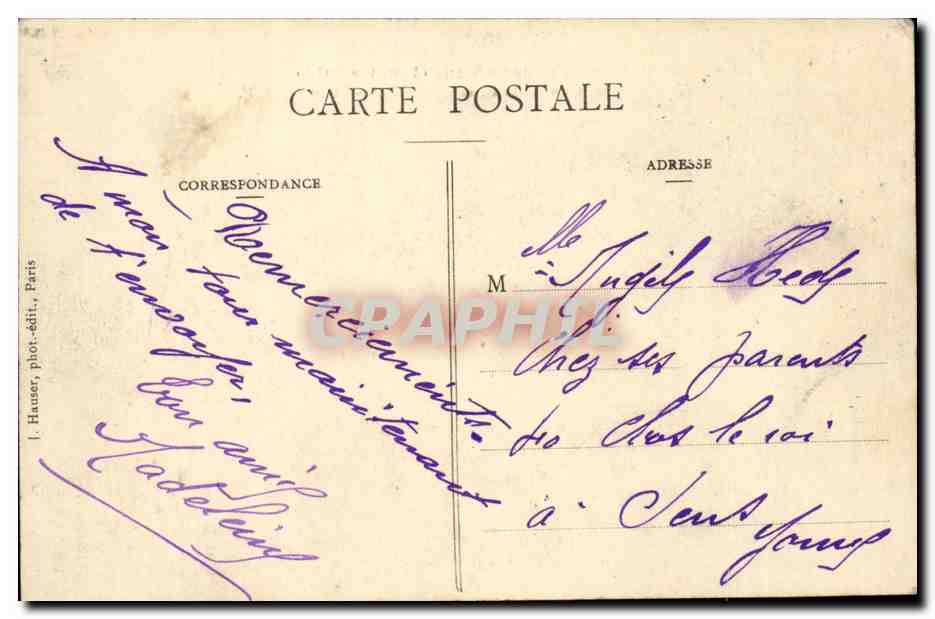 CARTE POSTALE
CORRESPONDANCE
Remerciements.
A mon tour maintenant
de t'envoyer,
ton amie
Madeleine
ADRESSE
M
Mlle Angèle
Chez ses parents
Clos le roi
à Sens
Yonne
J. Hauser, phot.-édit., Paris
CPAPHIL